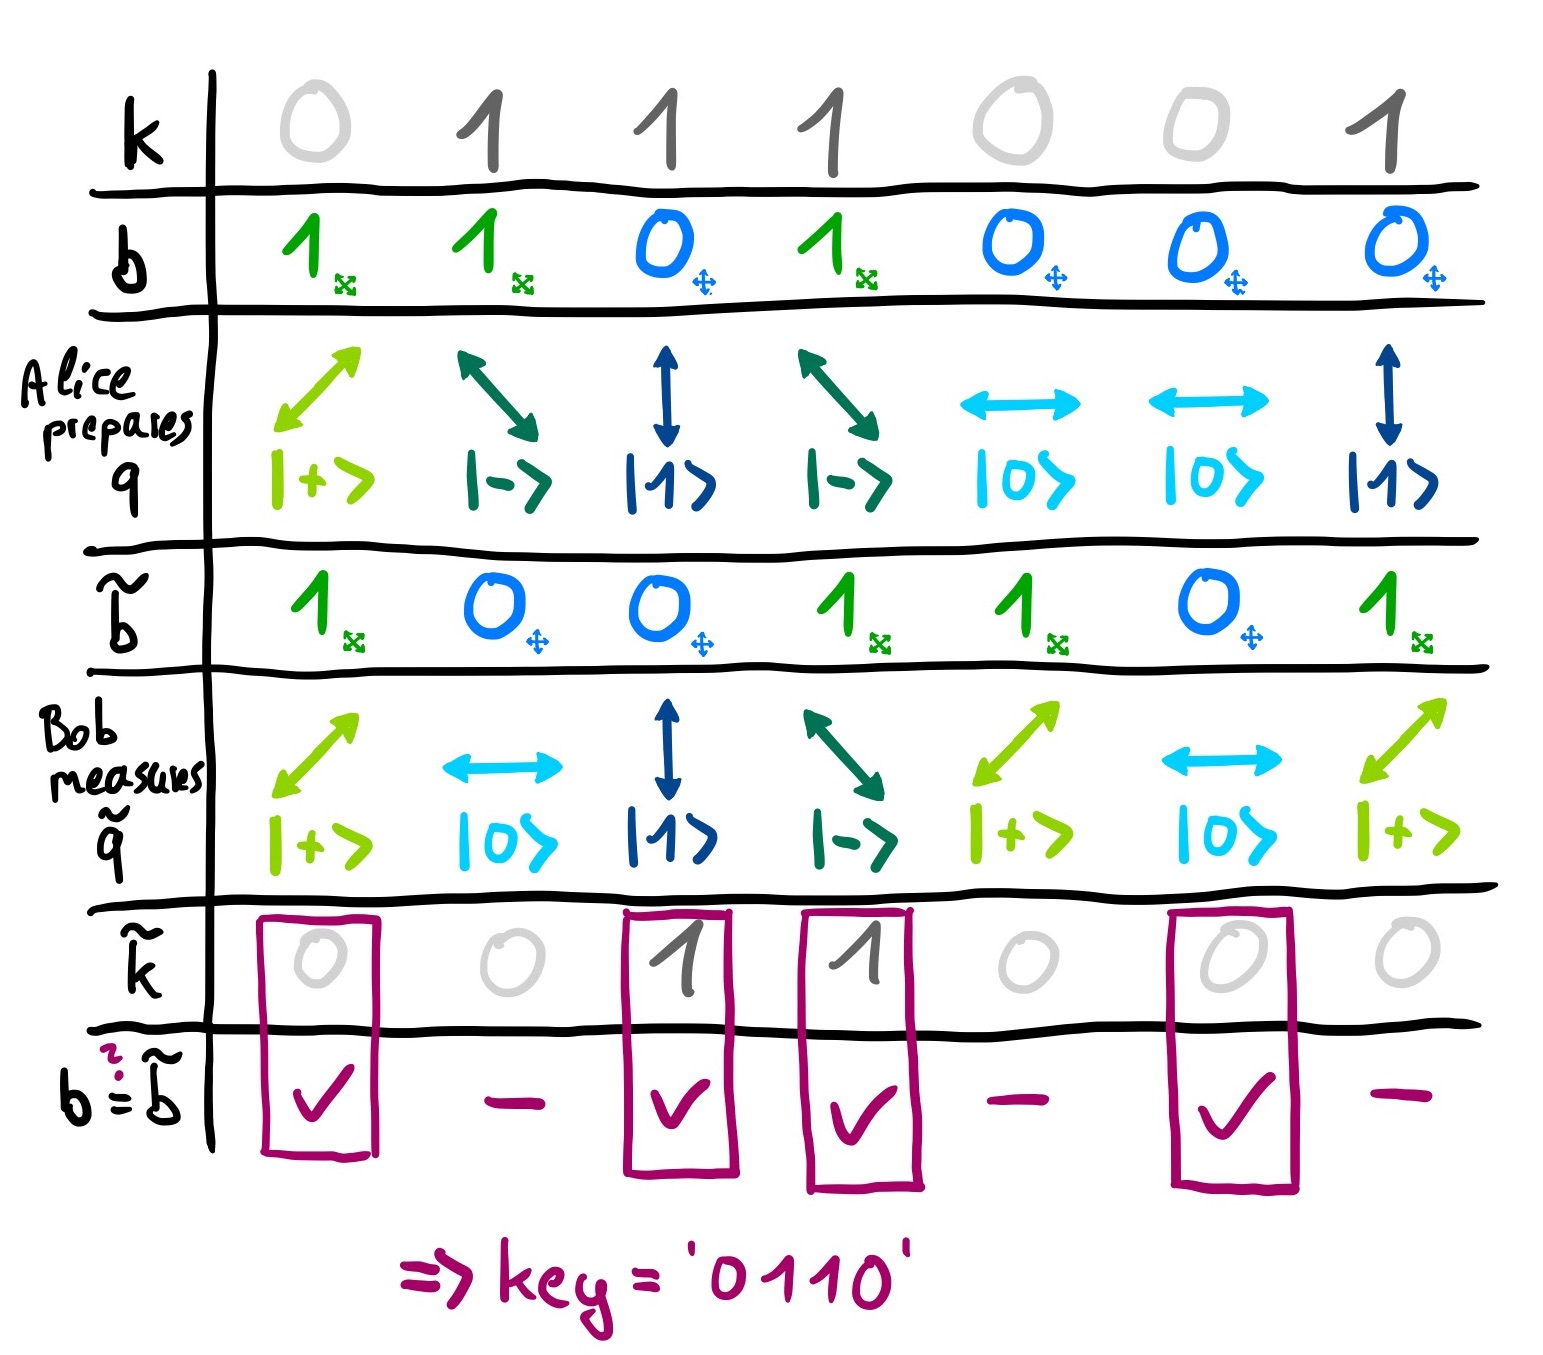 k 0 1 1 1 0 0 1
b 1 1 0 1 0 0 0
Alice
prepares
q |+> |-> |1> |-> |0> |0> |1>
b̃ 1 0 0 1 1 0 1
Bob
measures
q̃ |+> |0> |1> |-> |+> |0> |+>
k̃ 0 0 1 1 0 0 0
b ≟ b̃ ✓ – ✓ ✓ – ✓ –
=> key = '0110'